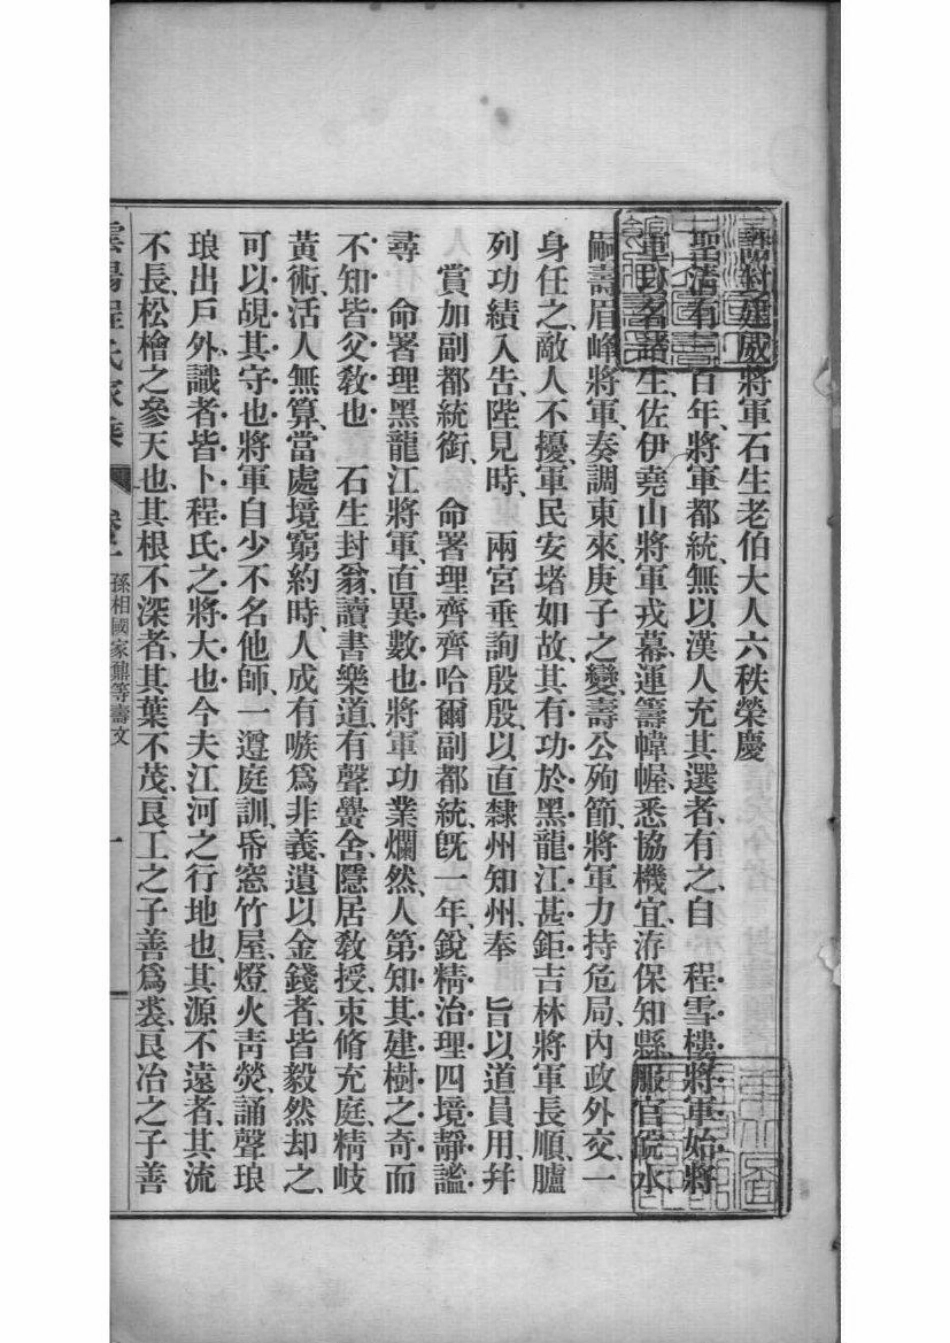 誥封建威將軍石生老伯大人六秩榮慶
聖清有二百年、將軍都統、無以漢人充其選者、有之、自　程雪樓將軍始、將
軍以名諸生、佐伊堯山將軍戎幕、運籌幃幄、悉協機宜、洊保知縣、服官皖水、
嗣壽眉峰將軍、奏調東來、庚子之變、壽公殉節、將軍力持危局、內政外交、一
身任之、敵人不擾、軍民安堵如故、其有功於黑龍江甚鉅、吉林將軍長順、臚
列功績入告、陛見時、　兩宮垂詢殷殷、以直隸州知州、奉　旨以道員用、幷
賞加副都統銜、　命署理齊齊哈爾副都統、旣一年、銳精治理、四境靜謐、
尋　命署理黑龍江將軍、直異數也、將軍功業爛然、人第知其建樹之奇、而
不知皆父敎也　石生封翁、讀書樂道、有聲黌舍、隱居敎授、束脩充庭、精岐
黃術、活人無算、當處境窮約時、人成有嗾爲非義、遺以金錢者、皆毅然却之、
可以覘其守也、將軍自少不名他師、一遵庭訓、帋窓竹屋、燈火靑熒、誦聲琅
琅出戶外、識者皆卜程氏之將大也、今夫江河之行地也、其源不遠者、其流
不長、松檜之參天也、其根不深者、其葉不茂、良工之子善爲裘、良冶之子善
雲陽程氏家乘　孫相國家鼐等壽文　一